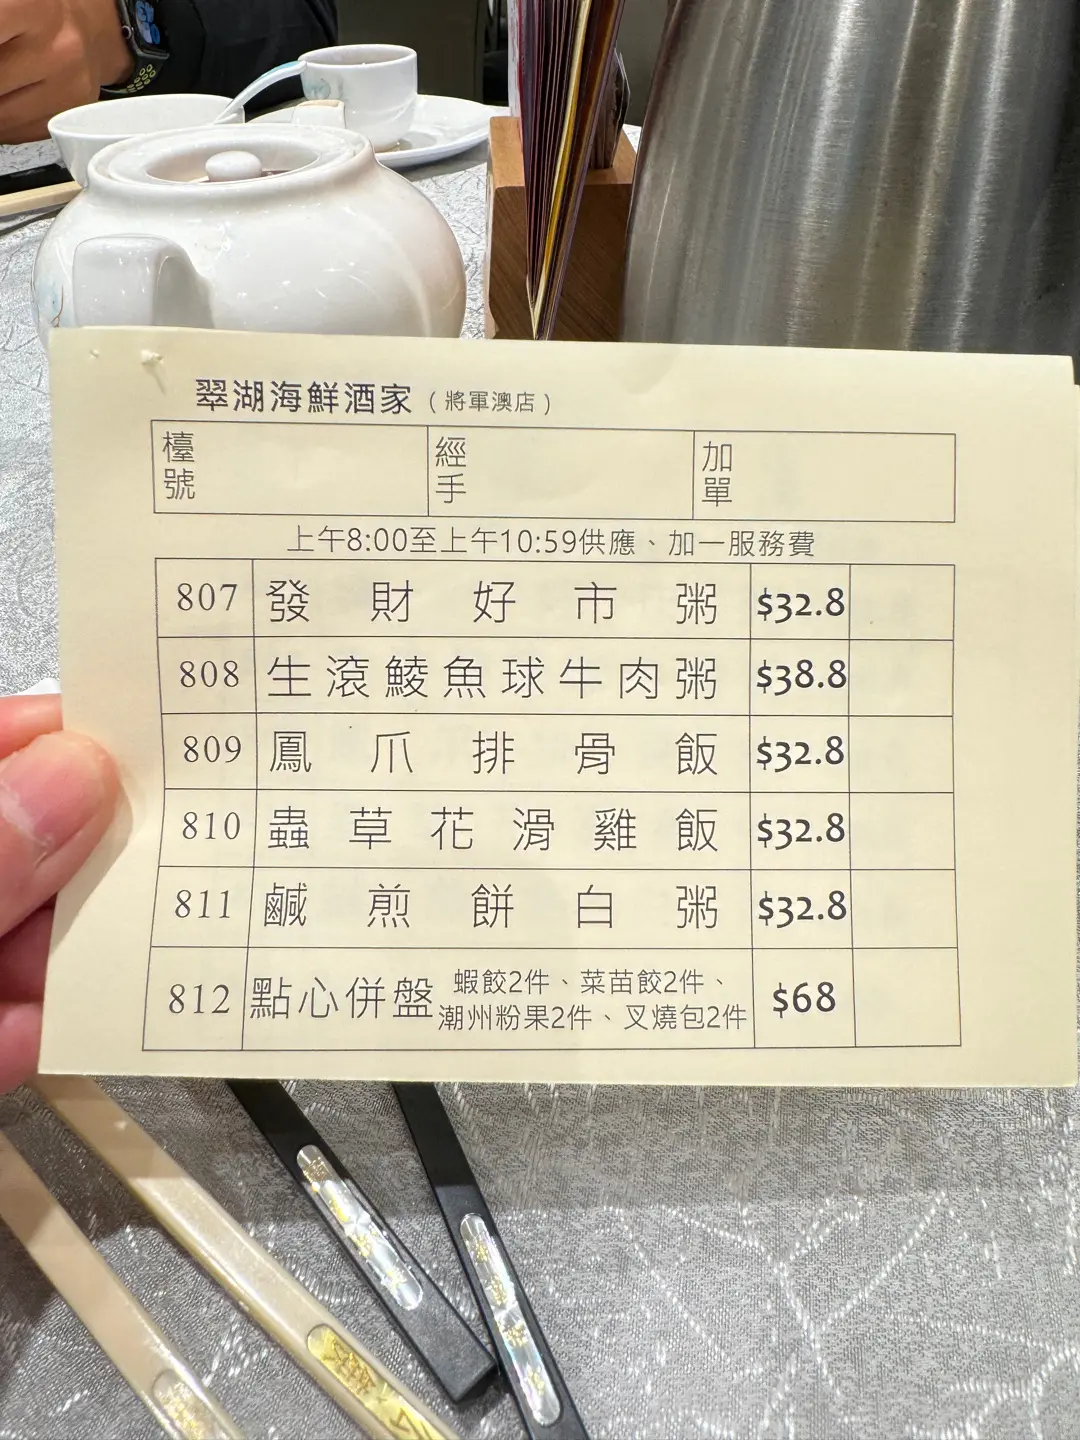 翠湖海鮮酒家（將軍澳店）
檯號 經手 加單
上午8:00至上午10:59供應、加一服務費
807 發財好市粥 $32.8
808 生滾鯪魚球牛肉粥 $38.8
809 鳳爪排骨飯 $32.8
810 蟲草花滑雞飯 $32.8
811 鹹煎餅白粥 $32.8
812 點心併盤 蝦餃2件、菜苗餃2件、
潮州粉果2件、叉燒包2件 $68